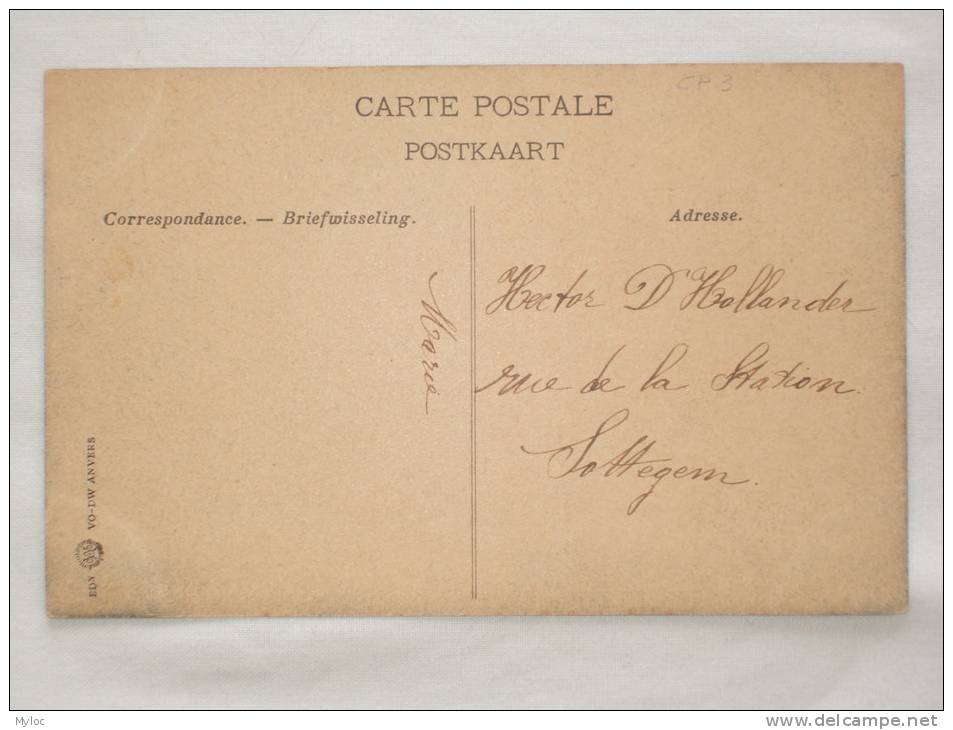 CP 3
CARTE POSTALE
POSTKAART
Correspondance. — Briefwisseling.
Adresse.
Marie
Hector D'Hollander
rue de la Station.
Sottegem.
EDN VO-DW ANVERS
Myloc
www.delcampe.net